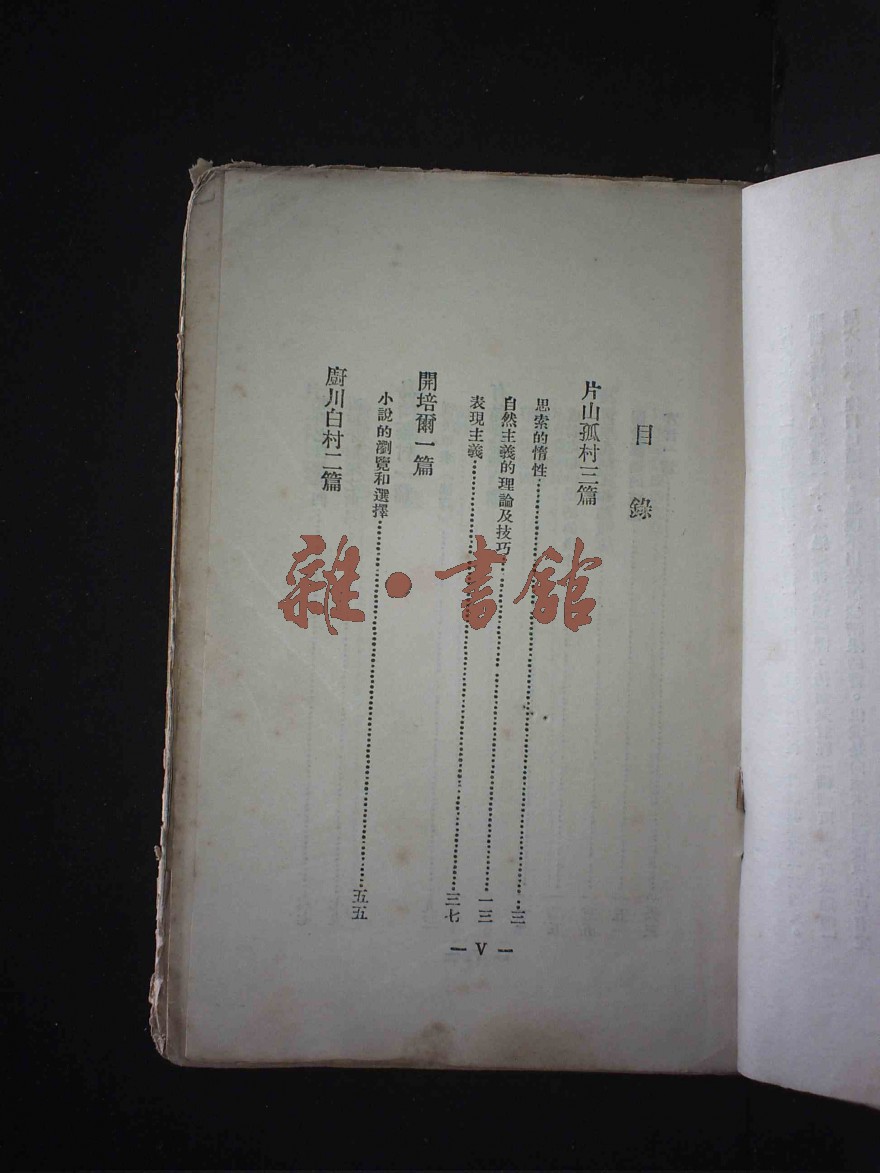 目錄
片山孤村三篇
思索的惰性……三
自然主義的理論及技巧……一三
表現主義……三七
開培爾一篇
小說的瀏覽和選擇……五五
廚川白村二篇
— V —
雜·書館